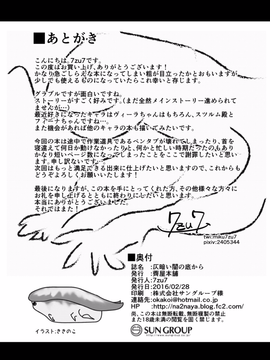 ■あとがき
こんにちは、7zu7です。
この度はお買い上げ、ありがとうございます！
かなり急ごしらえな本になってしまい粗が目立ったかとおもいますが
少しでも使える場所がありましたらこれ幸いと存じます。
グラブルですが面白いですね。
ストーリーがすごく好みです。(まだ全然メインストーリー進められて
ませんが…)
最近好きになったキャラはヴィーラちゃんはもちろん、スツルム殿と
フィーナちゃんですね…
また機会があれば他のキャラの本も描いてみたいです。
今回の本は途中で作業道具であるペンタブが壊れてしまったり、首を
寝違えて何日か動けなかったりと、何かと忙しい時期だったのもあり
かなり短いページ数になってしまったことをここで謝罪したいと思い
ます。申し訳ないです。
次回はもっと満足できる出来に仕上げたいと思いますので、これから
もどうぞよろしくお願いいたします！
最後になりますが、この本を手にとってくれた方、その他様々な方々に
お礼を申し上げるとともに終わりになりたいと思います。
本当にありがとうございました。
それではまた！
7zu7
pixiv:2405344
■奥付
誌名：仄暗い闇の底から
発行：
発行人：7zu7
発行日：2016/02/28
印刷：株式会社サングループ様
連絡先:okakoi@hotmail.co.jp
HP：http://na2naya.blog.fc2.com/
尚、この本は無断転載、無断複製の禁止
また18歳未満の閲覧を固く禁じます。
イラスト:ききのこ
SUN GROUP